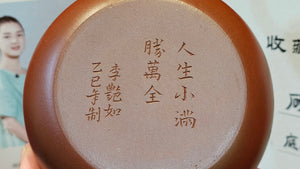 人生小满
勝萬全
李艷如
乙巳年制
收藏